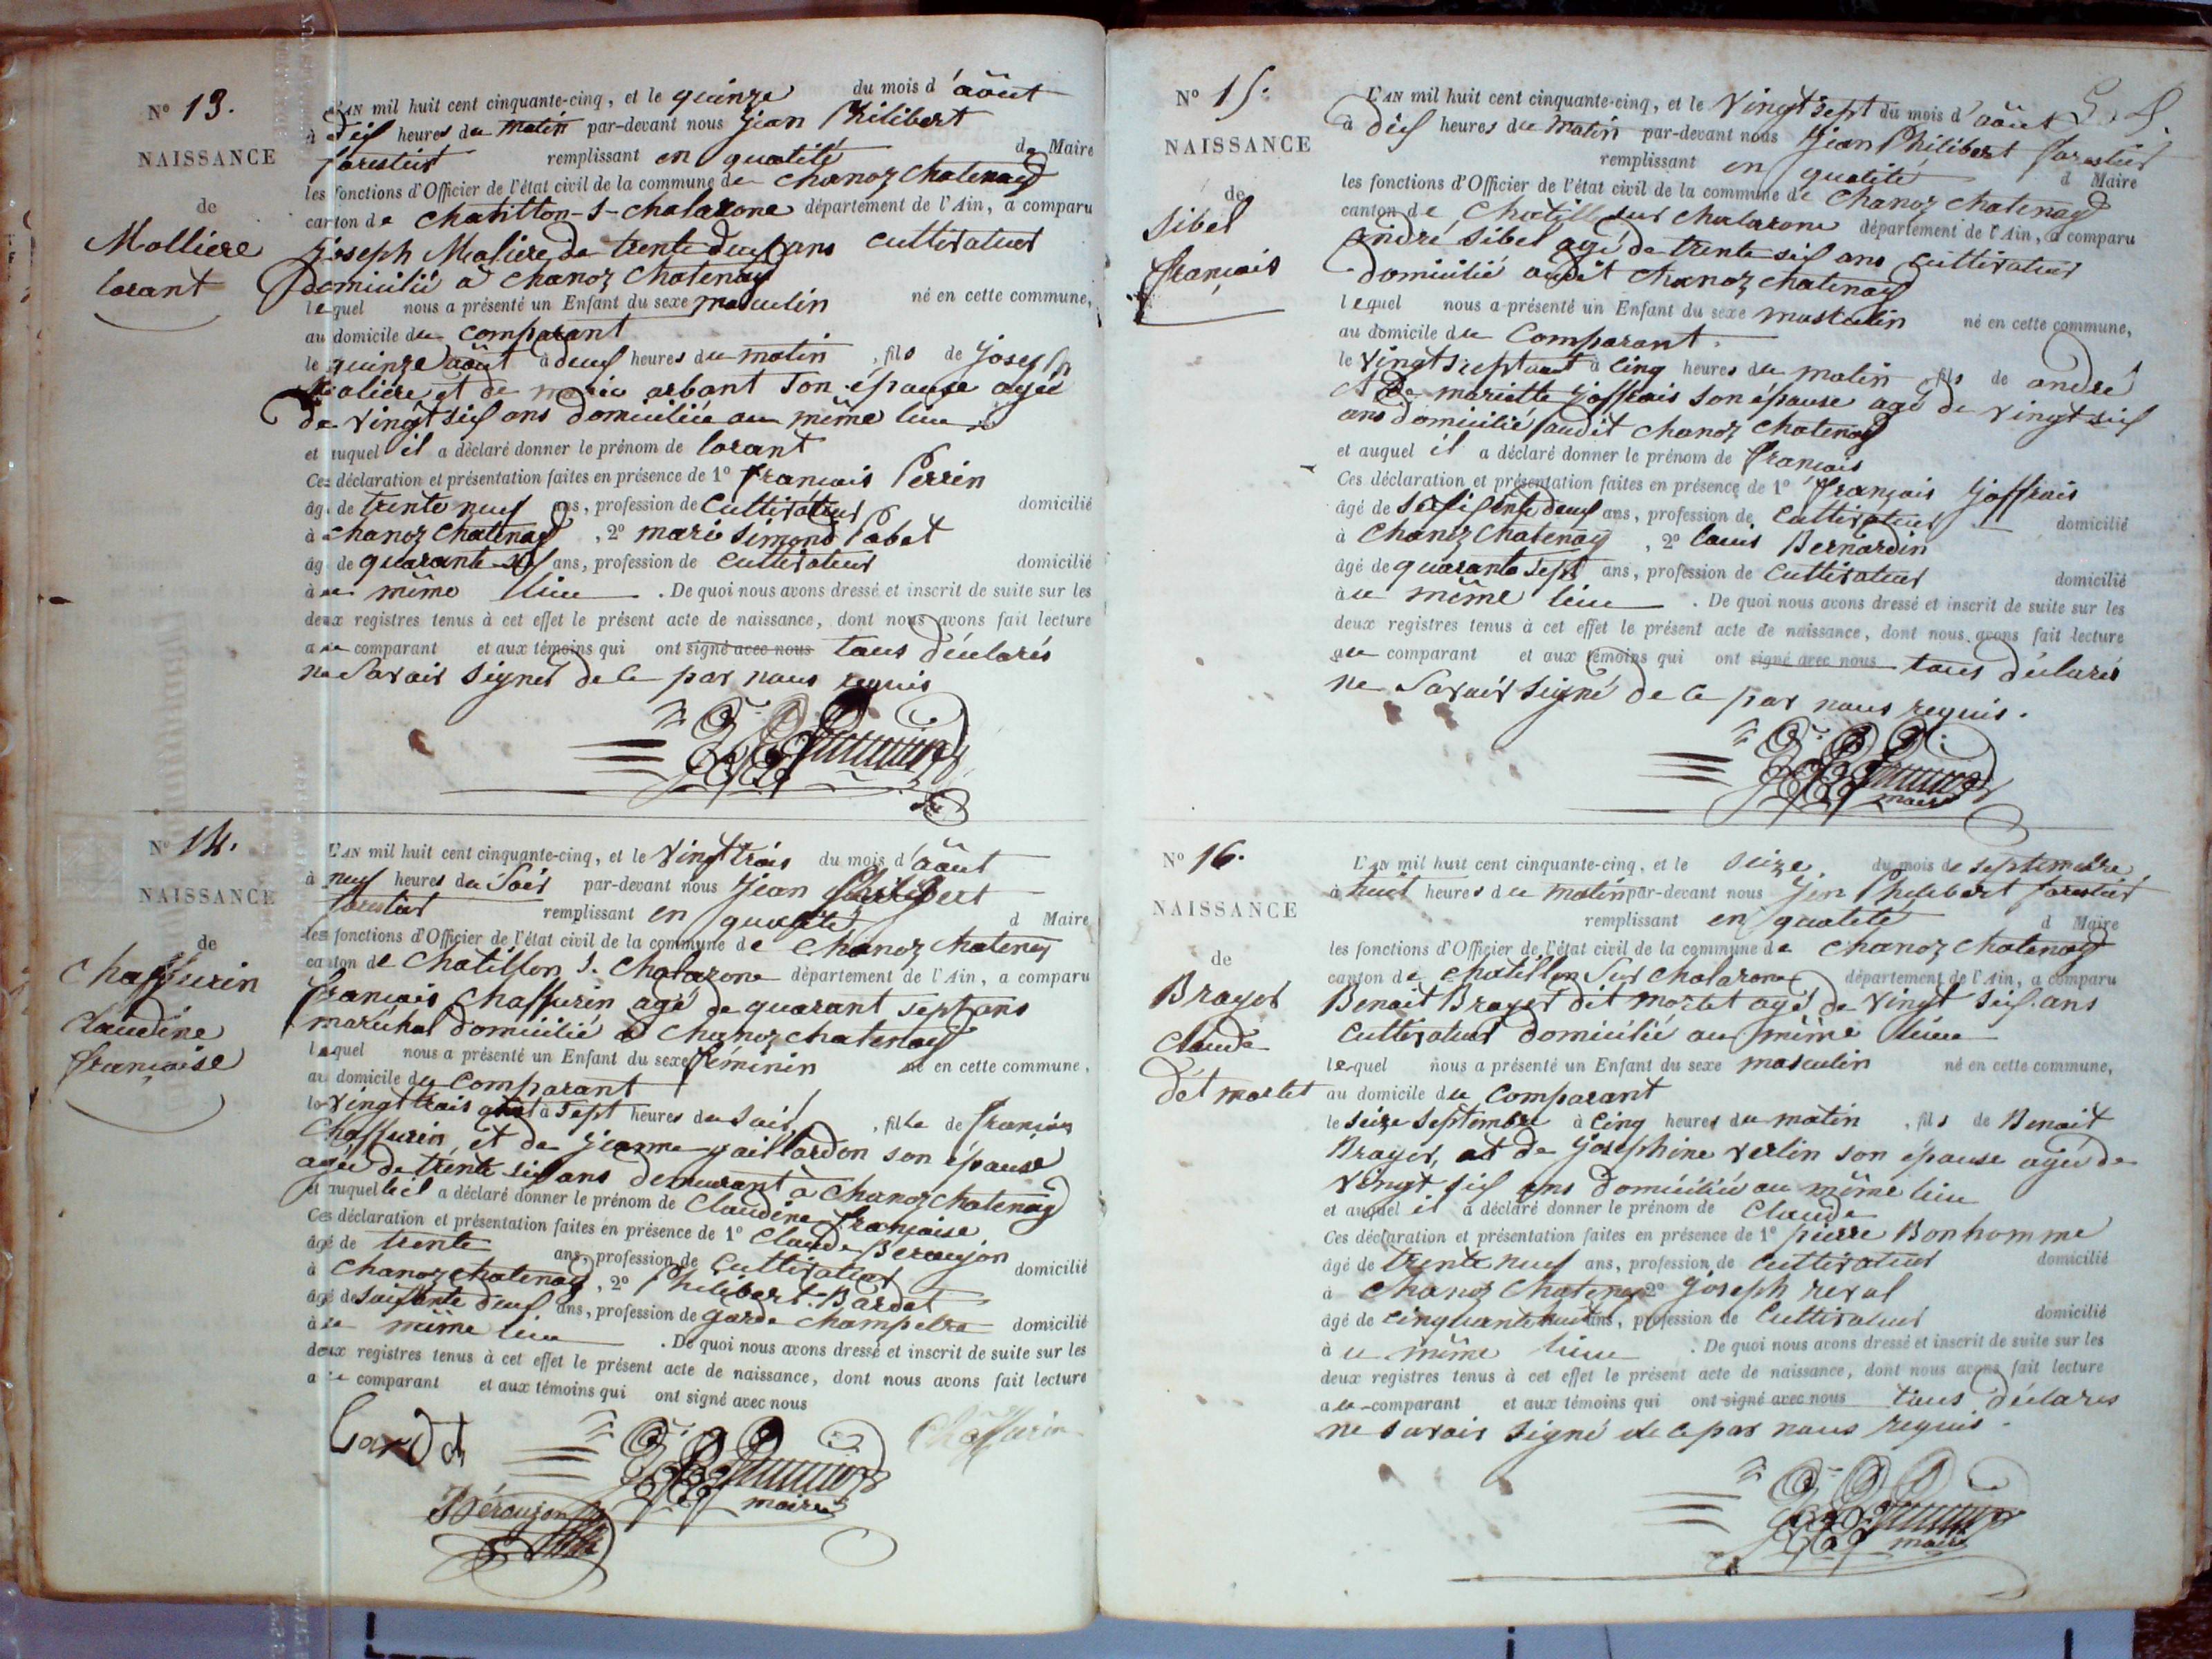 N° 13.
NAISSANCE
de
Molliere
lorant
L'AN mil huit cent cinquante-cinq, et le quinze du mois d'août
à dix heures du matin par-devant nous Jean Philibert
forestier remplissant en qualité de Maire
les fonctions d'Officier de l'état civil de la commune de Chanoz Chatenay
canton de Chatillon-s-Chalarone département de l'Ain, a comparu
Joseph Moliere de trente deux ans cultivateur
domicilié à Chanoz Chatenay
lequel nous a présenté un Enfant du sexe masculin né en cette commune,
au domicile du comparant
le quinze août à deux heures du matin, fils de Joseph
Moliere et de marie arbant son épouse agée
de vingt six ans domiciliée au même lieu
et auquel il a déclaré donner le prénom de lorant
Ces déclaration et présentation faites en présence de 1° françois Perrin
âgé de trente neuf ans, profession de Cultivateur domicilié
à Chanoz Chatenay, 2° marie Simond Pobet
âgé de quarante six ans, profession de cultivateur domicilié
à ce même lieu. De quoi nous avons dressé et inscrit de suite sur les
deux registres tenus à cet effet le présent acte de naissance, dont nous avons fait lecture
au comparant et aux témoins qui ont signé avec nous tous déclarés
ne Savoir signer de ce par nous requis
N° 14.
NAISSANCE
de
Chaffurin
Claudine
françoise
L'AN mil huit cent cinquante-cinq, et le vingt trois du mois d'août
à neuf heures du Soir par-devant nous Jean Philibert
forestier remplissant en qualité d Maire
les fonctions d'Officier de l'état civil de la commune de Chanoz Chatenay
canton de Chatillon s. Chalarone département de l'Ain, a comparu
françois Chaffurin agé de quarant sept ans
maréchal domicilié à Chanoz chatenay
lequel nous a présenté un Enfant du sexe féminin né en cette commune,
au domicile du Comparant
le vingt trois août à Sept heures du soir, fille de françois
Chaffurin et de Jeanne gaillardon son épouse
agée de trente six ans demeurant à Chanoz Chatenay
et auquel il a déclaré donner le prénom de Claudine françoise
Ces déclaration et présentation faites en présence de 1° Claude Beraujon
âgé de trente ans, profession de Cultivateur domicilié
à Chanoz chatenay, 2° Philibert Bardet
âgé de soixante deux ans, profession de garde Champetre domicilié
à ce même lieu. De quoi nous avons dressé et inscrit de suite sur les
deux registres tenus à cet effet le présent acte de naissance, dont nous avons fait lecture
au comparant et aux témoins qui ont signé avec nous
Bardet
Chaffurin
maire
Béraujon
N° 15.
NAISSANCE
de
Sibel
françois
L'AN mil huit cent cinquante-cinq, et le vingt sept du mois d'août
à dix heures du matin par-devant nous Jean Philibert forestier
remplissant en qualité d Maire
les fonctions d'Officier de l'état civil de la commune de Chanoz Chatenay
canton de Chatillon sur Chalarone département de l'Ain, a comparu
andré Sibel agé de trente six ans cultivateur
domicilié audit Chanoz chatenay
lequel nous a présenté un Enfant du sexe masculin né en cette commune,
au domicile du Comparant.
le vingt sept août à cinq heures du matin, fils de andré
et de mariette Joffrais son épouse agé de vingt six
ans domicilié audit Chanoz Chatenay
et auquel il a déclaré donner le prénom de françois
Ces déclaration et présentation faites en présence de 1° françois Joffrais
âgé de soixante deux ans, profession de Cultivateur domicilié
à Chanoz Chatenay, 2° louis Bernardin
âgé de quarante sept ans, profession de Cultivateur domicilié
à ce même lieu. De quoi nous avons dressé et inscrit de suite sur les
deux registres tenus à cet effet le présent acte de naissance, dont nous avons fait lecture
au comparant et aux témoins qui ont signé avec nous tous déclarés
ne Savoir signé de ce par nous requis.
maire
N° 16.
NAISSANCE
de
Brayer
Claude
dét mortet
L'AN mil huit cent cinquante-cinq, et le seize du mois de septembre
à huit heures du matin par-devant nous Jen Philibert forestier
remplissant en qualité d Maire
les fonctions d'Officier de l'état civil de la commune de Chanoz Chatenay
canton de Chatillon Sur Chalarone département de l'Ain, a comparu
Benoit Brayer dit mortet agé de vingt six ans
Cultivateur domicilié au même lieu
lequel nous a présenté un Enfant du sexe masculin né en cette commune,
au domicile du Comparant
le seize septembre à cinq heures du matin, fils de Benoit
Brayer, et de Joséphine verlin son épouse agée de
vingt six ans domiciliée au même lieu
et auquel il a déclaré donner le prénom de Claude
Ces déclaration et présentation faites en présence de 1° pierre Bonhomme
âgé de trente neuf ans, profession de cultivateur domicilié
à Chanoz Chatenay 2° Joseph reval
âgé de cinquante huit ans, profession de Cultivateur domicilié
à ce même lieu. De quoi nous avons dressé et inscrit de suite sur les
deux registres tenus à cet effet le présent acte de naissance, dont nous avons fait lecture
au comparant et aux témoins qui ont signé avec nous tous déclarés
ne savoir signé de ce par nous requis.
maire